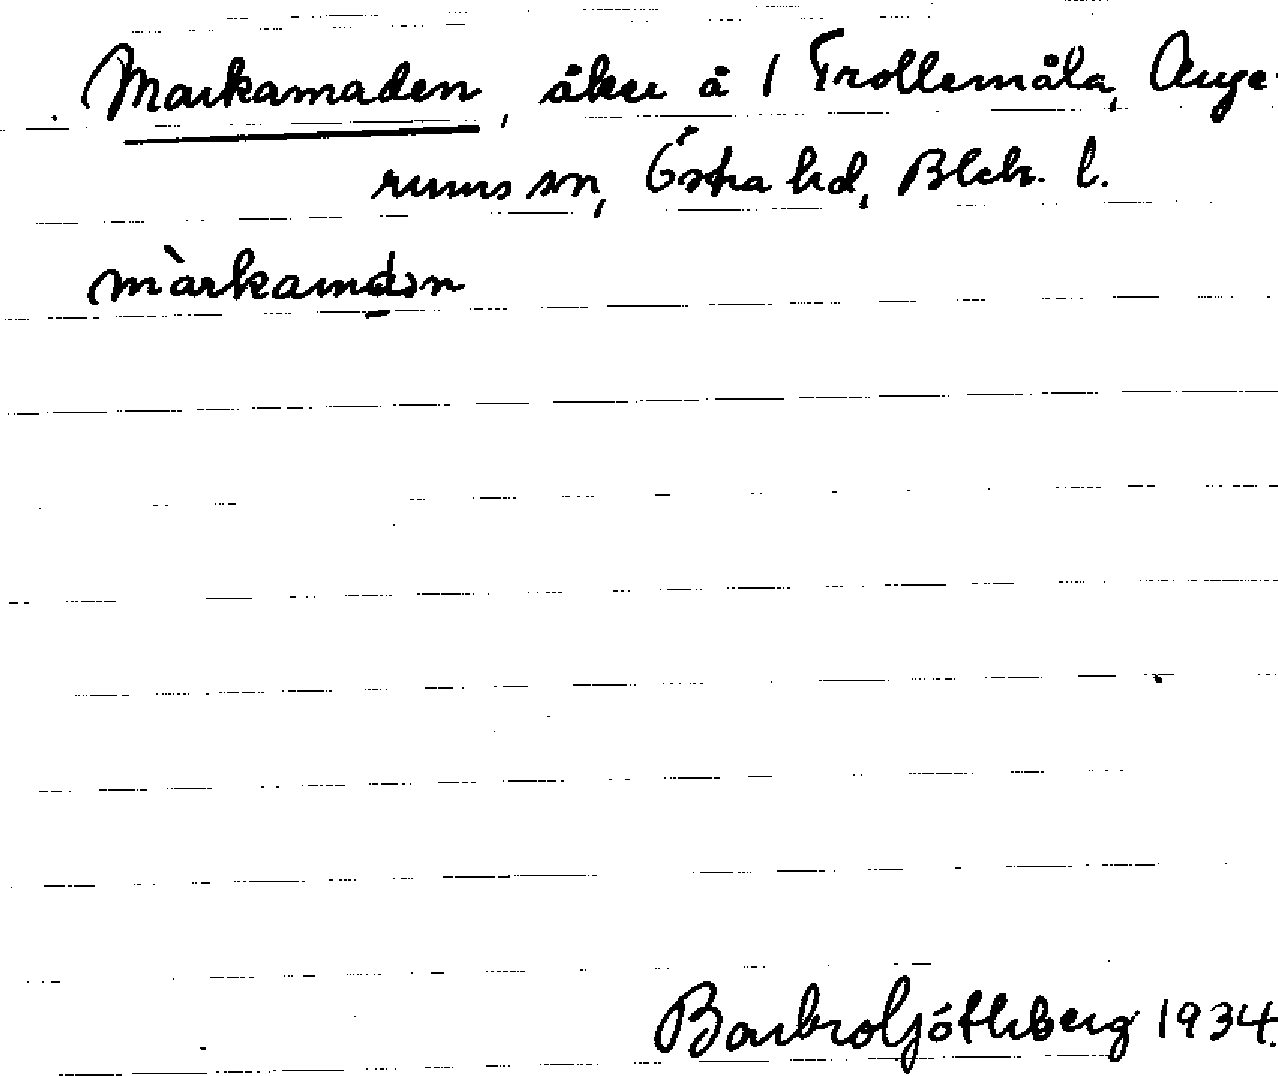 Markamaden, åker å 1 Trollemåla, Auge-
rums sn, Östra hd, Blek. l.
màrkamdən
Barbro Götlsberg 1934.